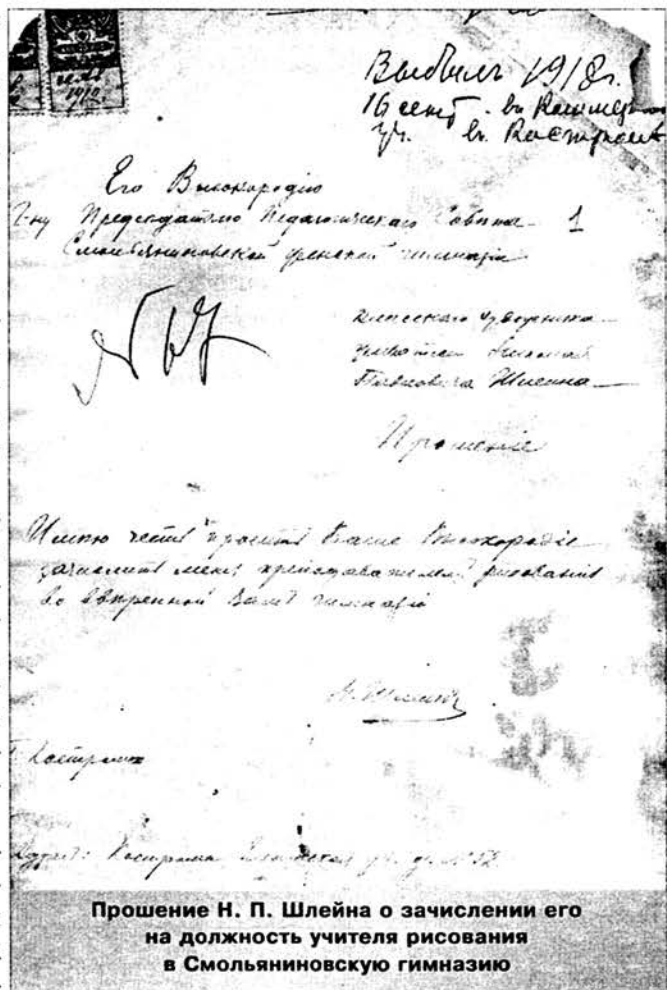 Выбылъ 1918 г.
16 сент. въ Коммер
уч. въ Костромѣ
Его Высокородію
Г-ну Предсѣдателю Педагогическаго Совѣта 1
Смольяниновской женской гимназіи
класснаго художника
Николая
Павловича Шлеина
Прошеніе
Имѣю честь просить Ваше Высокородіе
зачислить меня преподавателемъ рисованія
во ввѣренной Вамъ гимназіи
Н. Шлеинъ
Кострома
Адресъ: Кострома
Прошение Н. П. Шлейна о зачислении его
на должность учителя рисования
в Смольяниновскую гимназию